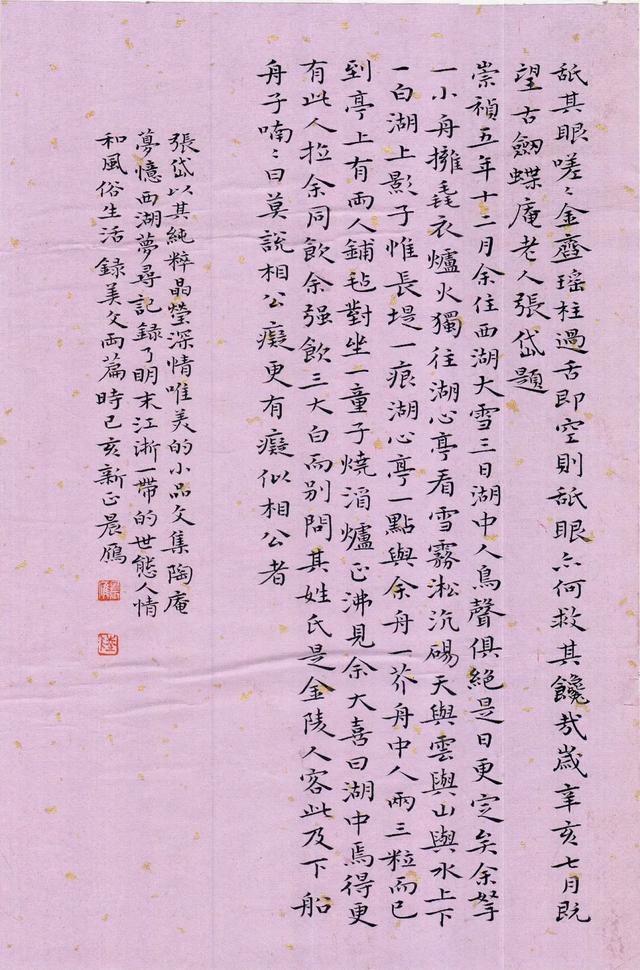 舐其眼嗟〻金虀瑶柱過舌即空則舐眼亦何救其饞哉歲辛亥七月既
望古劔蝶庵老人張岱題
崇禎五年十二月余住西湖大雪三日湖中人鳥聲俱絕是日更定矣余拏
一小舟擁毳衣爐火獨往湖心亭看雪霧淞沆碭天與雲與山與水上下
一白湖上影子惟長堤一痕湖心亭一點與余舟一芥舟中人兩三粒而已
到亭上有兩人鋪氈對坐一童子燒酒爐正沸見余大喜曰湖中焉得更
有此人拉余同飲余强飲三大白而别問其姓氏是金陵人客此及下船
舟子喃〻曰莫說相公癡更有癡似相公者
張岱以其純粹晶瑩深情唯美的小品文集陶庵
夢憶西湖夢尋記錄了明末江浙一帶的世態人情
和風俗生活錄美文兩篇時己亥新正晨雁